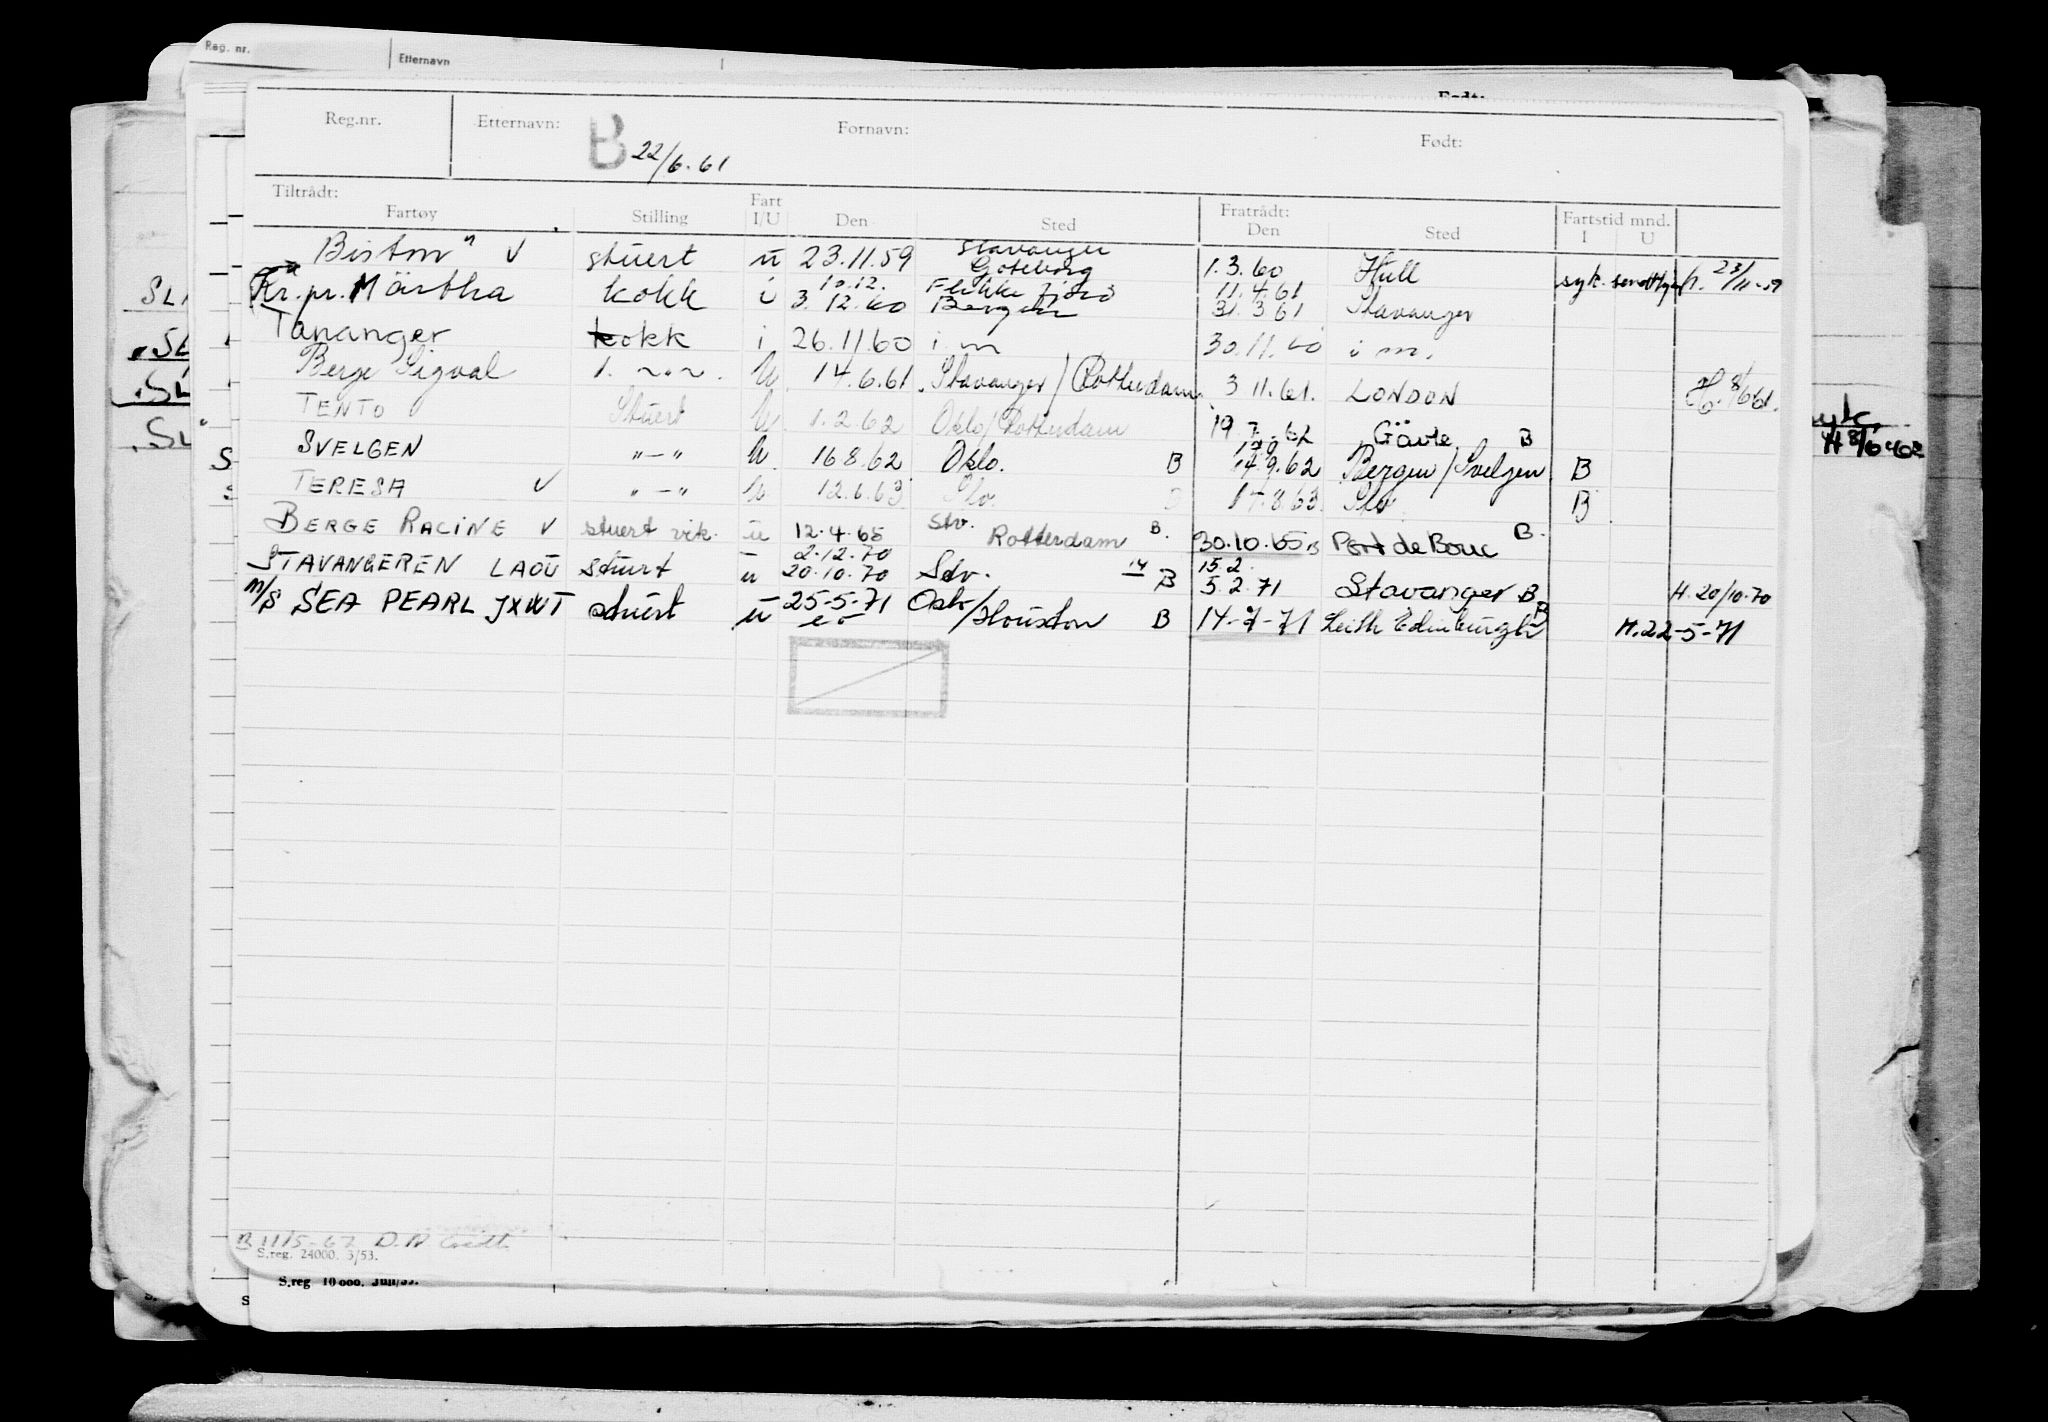 Reg. nr. Etternavn
Født:
Reg.nr. Etternavn: Fornavn: Født:
B 22/6.61
Tiltrådt: Fratrådt: Fartstid mnd.
Fartøy Stilling Fart I/U Den Sted Den Sted I U
" V stuert u 23.11.59 Stavanger Göteborg 1.3.60 Hull syk. 23/11-59
Kr.pr. Märtha kokk i 10.12. Flekkefjord 11.4.61
3.12.60 Bergen 31.3.61 Stavanger
Tananger kokk i 26.11.60 i m 30.11.60 i m.
Berge Sigval 1. -"- U. 14.6.61 Stavanger/Rotterdam 3 11.61. LONDON H. 8/6 61.
TENTO Stuert U. 1.2.62 Oslo/Rotterdam 19 7.62 Gävle B
SVELGEN "-" U. 16 8.62 Oslo. B 14.9.62 Bergen/Svelgen B
TERESA V "-" U 12.6.63 Slv. 17.8.63 Slv. B
BERGE RACINE V stuert vik. u 12.4.65 Stv. Rotterdam B. 30.10.65 B Port de Bouc B.
2.12.70 15.2.
STAVANGEREN LAOU stuert u 20.10.70 Sdv. 14 B 5.2.71 Stavanger B H. 20/10.70
m/s SEA PEARL JXWT stuert u 25-5-71 Oslo/Houston B 14-7-71 Leith Edinburgh B H.22-5-71
B 11/5-67
S.reg. 24000. 3/53.
S.reg 10 000.